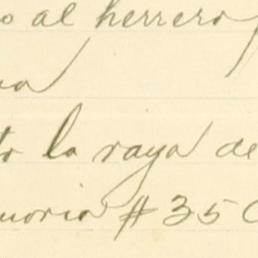 o al herrero
to la raya de
moria # 350